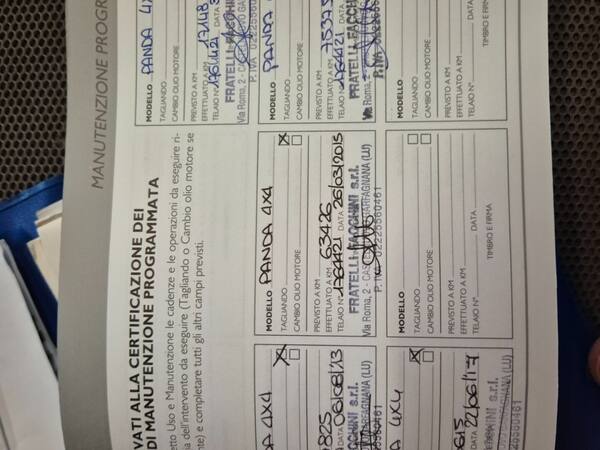 MANUTENZIONE PROGR
VATI ALLA CERTIFICAZIONE DEI
DI MANUTENZIONE PROGRAMMATA
etto Uso e Manutenzione le cadenze e le operazioni da eseguire ri-
a dell'intervento da eseguire (Tagliando o Cambio olio motore se
nte) e completare tutti gli altri campi previsti.
MODELLO PANDA 4X
TAGLIANDO
CAMBIO OLIO MOTORE
PREVISTO A KM
EFFETTUATO A KM 17148
TELAIO N° 1764421 DATA
FRATELLI FACCHINI
Via Roma, 2 - CASTELNUOVO GA
P. IVA 02225560
MODELLO PANDA 4
TAGLIANDO
CAMBIO OLIO MOTORE
PREVISTO A KM
EFFETTUATO A KM 75375
TELAIO N° 1764421 DATA
FRATELLI FACCH
Via Roma, 2
P. IVA
MODELLO
TAGLIANDO
CAMBIO OLIO MOTORE
PREVISTO A KM
EFFETTUATO A KM
TELAIO N° DATA
TIMBRO E FIRMA
MODELLO PANDA 4X4
TAGLIANDO X
CAMBIO OLIO MOTORE
PREVISTO A KM
EFFETTUATO A KM 63426
TELAIO N° 1764421 DATA 26/03/2015
FRATELLI FACCHINI s.r.l.
Via Roma, 2 - GARFAGNANA (LU)
P. IVA 02225560461
MODELLO
TAGLIANDO
CAMBIO OLIO MOTORE
PREVISTO A KM
EFFETTUATO A KM
TELAIO N° DATA
TIMBRO E FIRMA
DA 4X4
X
825
DATA 06/08/13
FACCHINI s.r.l.
GARFAGNANA (LU)
25560461
A 4X4
X
615
22/06/17
CHINI s.r.l.
GARFAGNANA (LU)
25560461